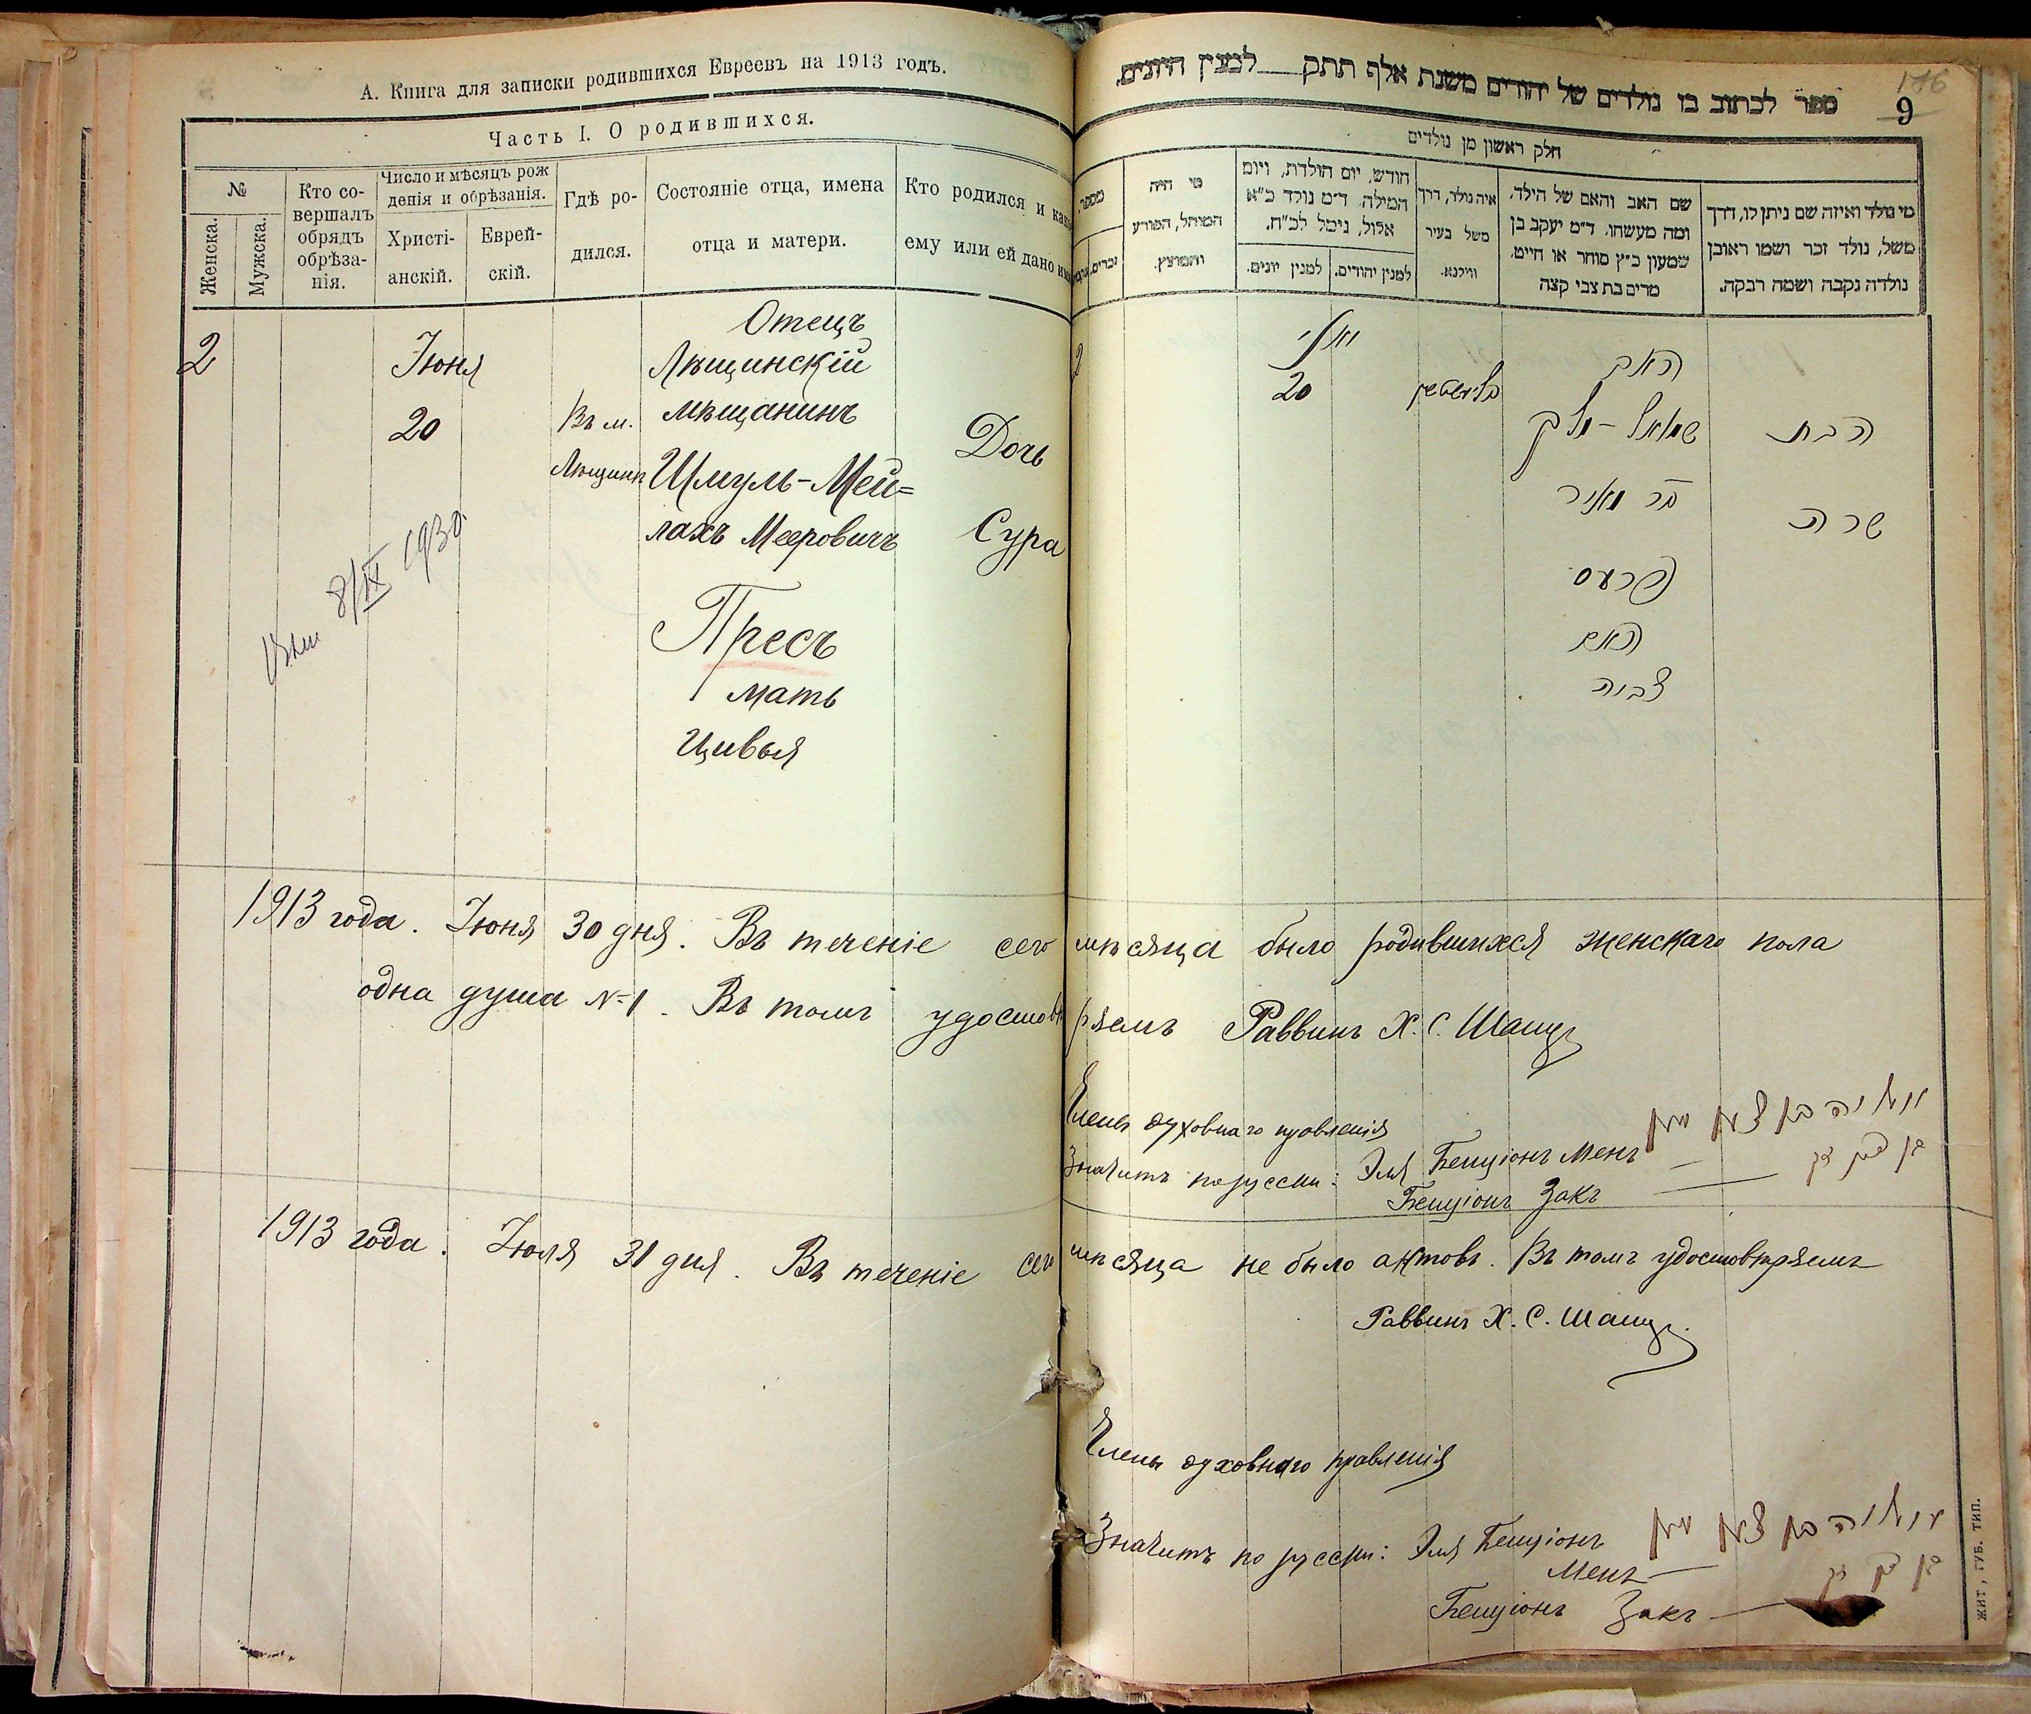 А. Книга для записки родившихся Евреевъ на 1913 годъ.
Часть I. О родившихся.
№
Женска.
Мужска.
Кто со-
вершалъ
обрядъ
обрѣза-
нія.
Число и мѣсяцъ рож
денія и обрѣзанія.
Христі-
анскій.
Еврей-
скій.
Гдѣ ро-
дился.
Состояніе отца, имена
отца и матери.
Кто родился и как
ему или ей дано им
2
Іюня
20
Въ м.
Лѣщинъ
Отецъ
Лѣщинскій
мѣщанинъ
Шмуль-Мей=
лахъ Мееровичъ
Пресъ
мать
Цивья
Дочь
Сура
8/IX 1930
176
9
ספר לכתוב בו נולדים של יהודים משנת אלף תתק למנין היונים.
חלק ראשון מן נולדים
מספר.
זכרים.
מי היה
המוהל, הפורע
והמוצץ.
חודש, יום הולדת, ויום
המילה. ד״מ נולד כ״א
אלול, נימל לכ״ח.
למנין יונים.
למנין יהודים.
איה נולד, דרך
משל בעיר
ווילנא.
שם האב והאם של הילד,
ומה מעשהו. ד״מ יעקב בן
שמעון כ״ץ סוחר או חייט,
מרים בת צבי קצה
מי נולד ואיזה שם ניתן לו, דרך
משל, נולד זכר ושמו ראובן
נולדה נקבה ושמה רבקה.
2
יולי
20
האב
שמואל-מלך
בר מאיר
פרעס
האם
צביה
הבת
שרה
1913 года. Іюня 30 дня. Въ теченіе сего мѣсяца было родившихся женскаго пола
одна душа №1. Въ томъ удостовѣряемъ Раввинъ Х. С. Шацъ
Члены духовнаго правленія
Значитъ по русски: Эля Бенціонъ Менъ
Бенціонъ Закъ
1913 года. Іюля 31 дня. Въ теченіе сего мѣсяца не было актовъ. Въ томъ удостовѣряемъ
Раввинъ Х. С. Шацъ.
Члены духовнаго правленія
Значитъ по русски: Эля Бенціонъ
Менъ
Бенціонъ Закъ
ЖИТ, ГУБ. ТИП.